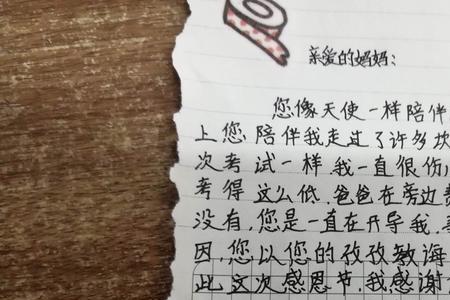 亲爱的妈妈:
您像天使一样陪伴
上您陪伴我走过了许多坎
次考试一样,我一直很伤,
考得这么低,爸爸在旁边责
没有,您是一直在开导我,
因,您以您的孜孜教海
此这次感恩节,我感谢